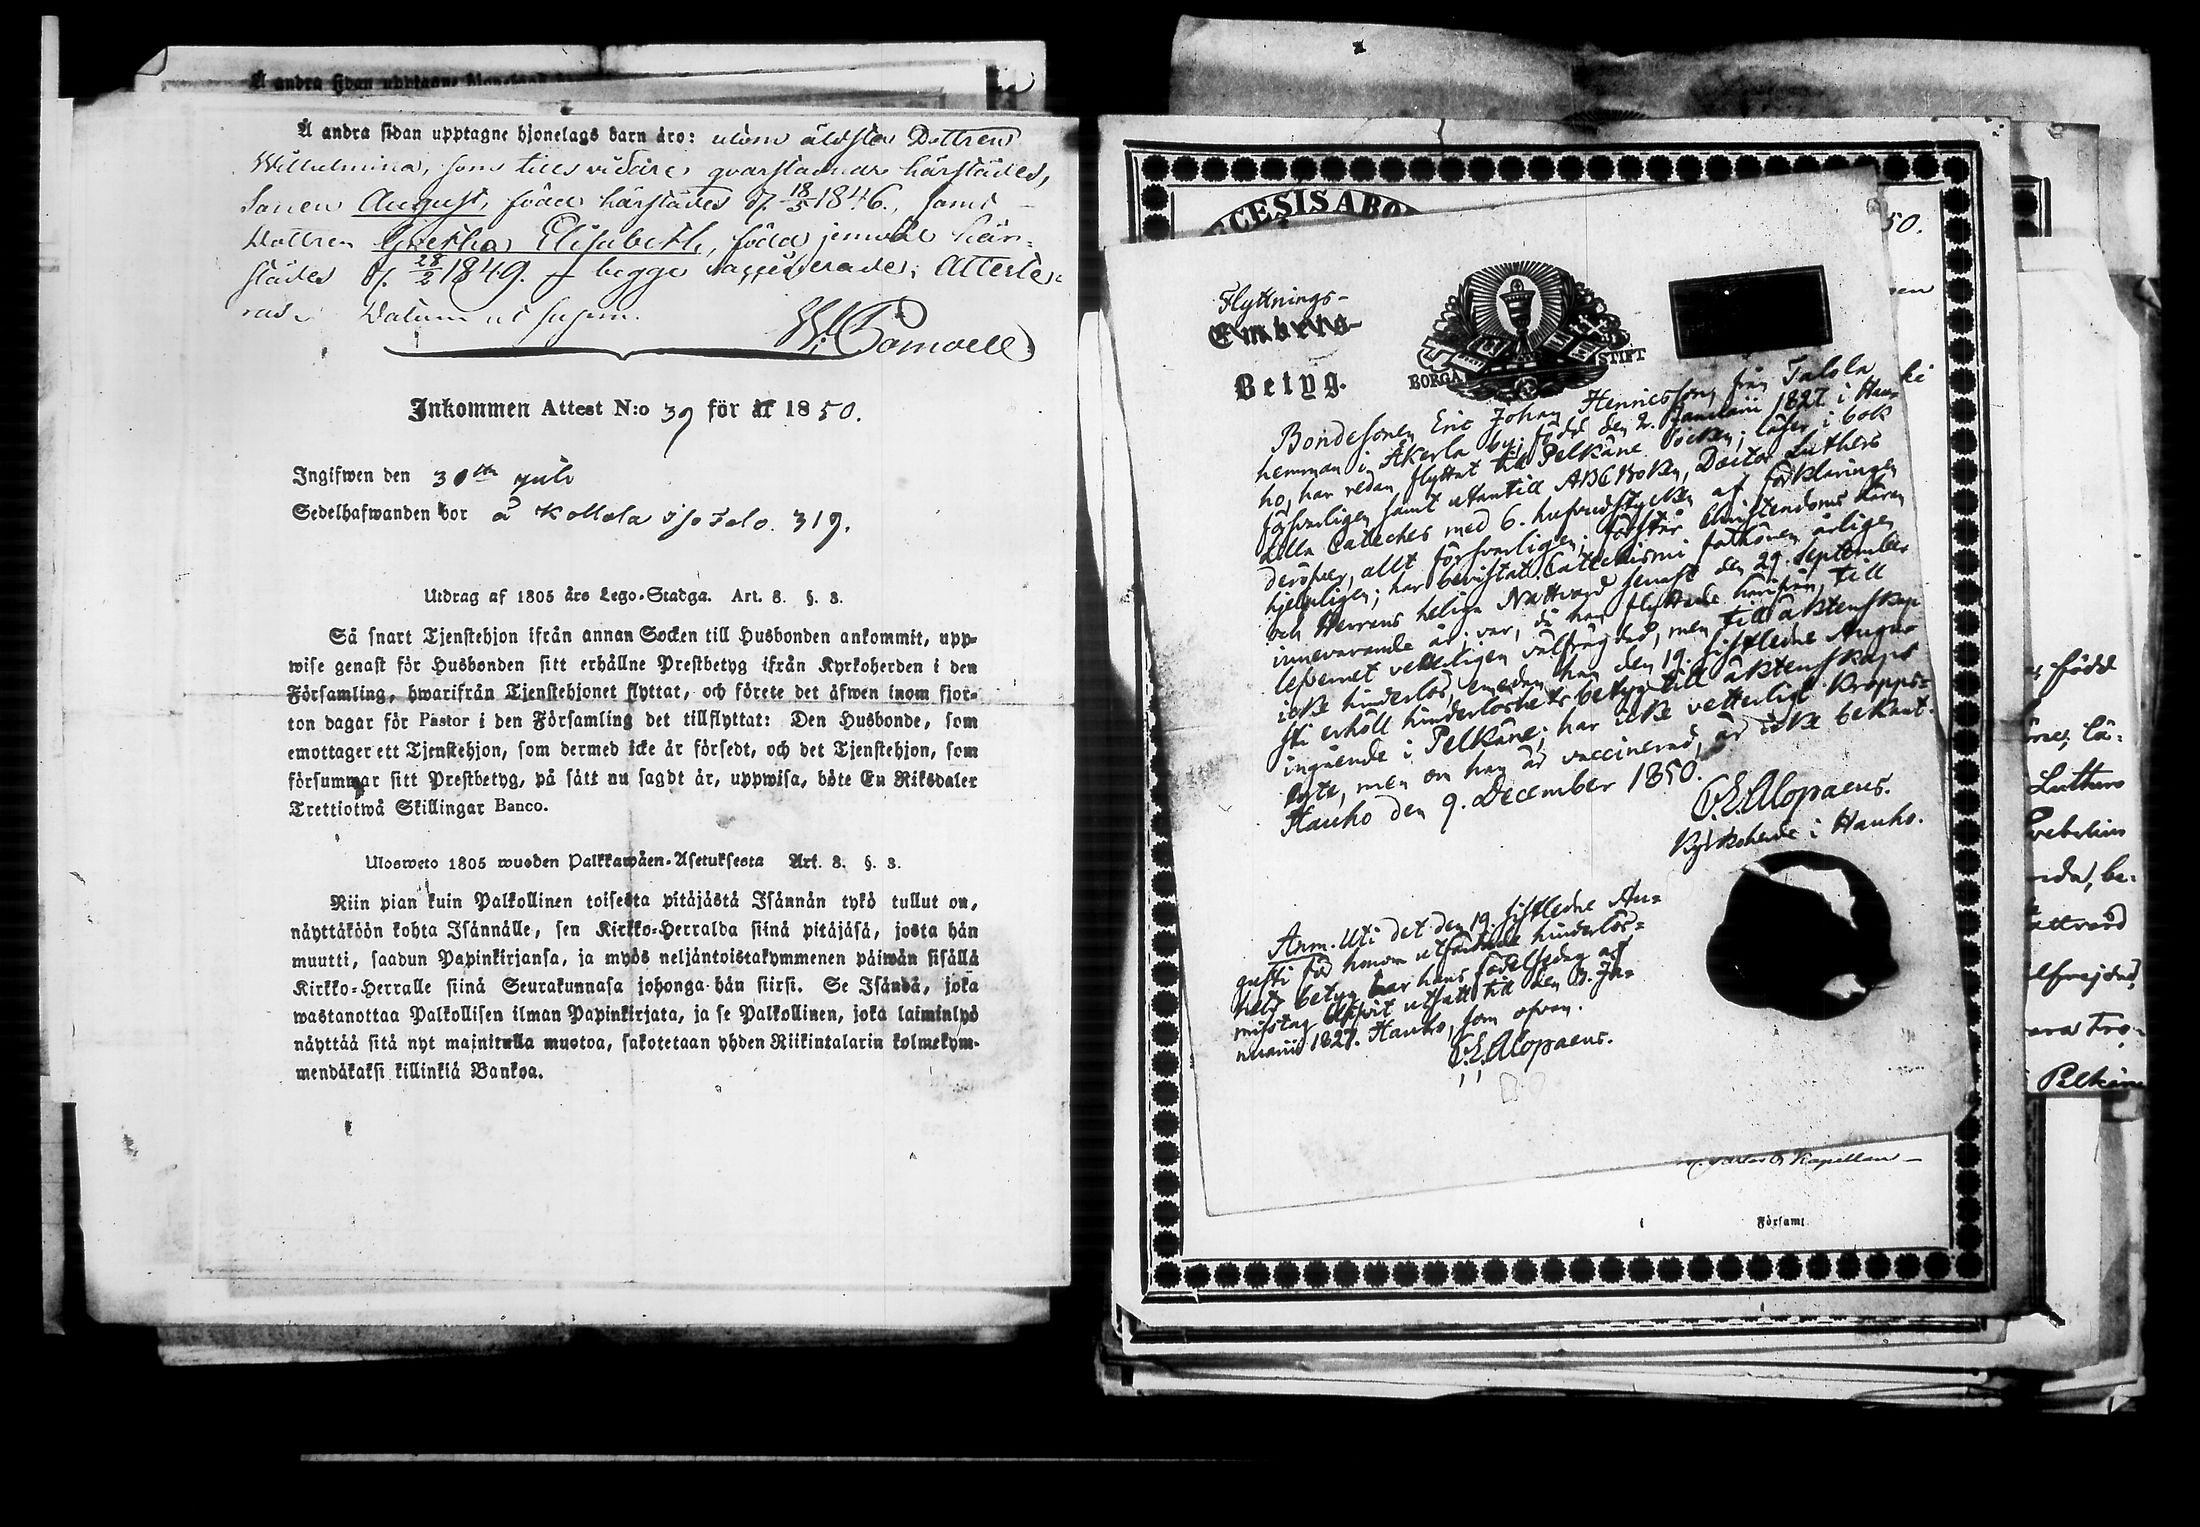 Å andra sidan upptagne hjonelags barn äro: utom äldsta Dottren
Wilhelmina, som tills vidare qvarstadnar härstädes,
Sonen August, född härstädes d. 18/5 1846, samt
Dottren Gretha Elisabeth, född jemväl här-
städes d. 28/2 1849. – begge vaccinerade; Atteste-
rad. Datum ut supra.
Inkommen Attest N:o 39 för år 1850.
Ingifwen den 30th juli
Sedelhafwanden bor å Kollola Folo. 319.
Utdrag af 1805 års Lego-Stadga. Art. 8. §. 3.
Så snart Tjenstehjon ifrån annan Socken till Husbonden ankommit, upp-
wise genast för Husbonden sitt erhållne Prestbetyg ifrån Kyrkoherden i den
Församling, hwarifrån Tjenstehjonet flyttat, och förete det äfwen inom fjor-
ton dagar för Pastor i den Församling det tillflyttat: Den Husbonde, som
emottager ett Tjenstehjon, som dermed icke är försedt, och det Tjenstehjon, som
försummar sitt Prestbetyg, på sätt nu sagdt är, uppwisa, böte En Riksdaler
Trettiotwå Skillingar Banco.
Ulosweto 1805 wuoden Palkkawäen-Asetuksesta Art. 8. §. 3.
Niin pian kuin Palkollinen toisesta pitäjästä Isännän tykö tullut on,
näyttäköön kohta Isännälle, sen Kirkko-Herralda siinä pitäjäsä, josta hän
muutti, saadun Papinkirjansa, ja myös neljäntoistakymmenen päiwän sisällä
Kirkko-Herralle siinä Seurakunnasa johonga hän siirsi. Se Isändä, joka
wastanottaa Palkollisen ilman Papinkirjata, ja se Palkollinen, joka laiminlyö
näyttää sitä nyt majnitulla muotoa, sakotetaan yhden Riikintalarin kolmekym-
mendäkaksi killinkiä Bankoa.
CESIS ABO
50.
Flyttnings-
Embets-
Betyg.
BORGÅ STIFT
Bondesonen Eric Johan Henricsson från Talola
hemman i Åkerla by, född den 2. Januarii 1827 i Hau-
ho, har redan flyttat till Pelkäne Socken; läser i bok
försvarligen samt utantill ABC Boken, Doctor Luthers
lilla Cateches med 6. hufvudstycken af förklaringen
deröfver, allt försvarligen; förstår Christendoms läran
hjelpligen; har bevistat Catechismi förhören årligen
och Herrens heliga Nattvard senast den 29. September
innevarande år; var, då han flyttade härifrån, till
lefvernet veterligen välfrägdad, men till äktenskap
icke hinderlös, emedan han den 19. sistledne Augu-
sti erhöll hinderlöshets betyg till äktenskaps
ingående i Pelkäne; har icke vetterligt kropps-
lyte, men om han är vaccinerad, är icke bekant.
Hauho den 9. December 1850.
C.E. Alopaeus.
Kyrkoherde i Hauho.
Anm. Uti det den 19. sistledne Au-
gusti för honom utfärdade hinderlös-
hets betyg har hans födelsedag af
misstag blifvit utsatt till den 3. Ja-
nuarii 1827. Hauho, som ofvan.
C.E. Alopaeus.
Kapellan
Församl
född
Luthers
be-
Pelkäne